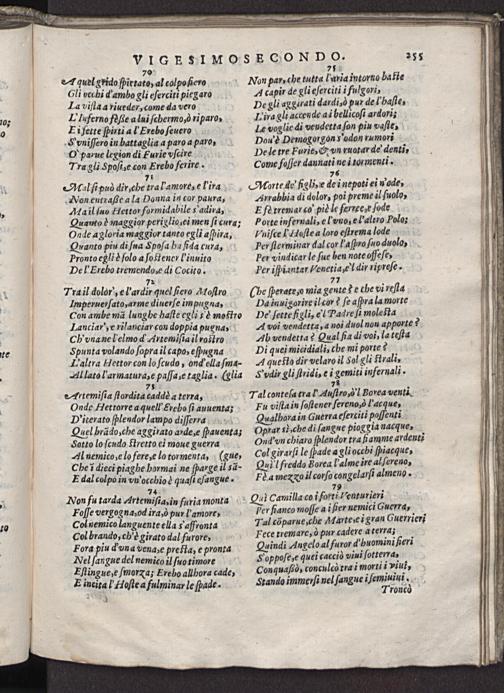 VIGESIMOSECONDO. 255
70
A quel grido spietato, al colpo fiero
Gli occhi d'ambo gli eserciti piegaro
La vista a riueder, come da vero
L'Inferno fosse a lui schermo, ò riparo,
E i sette spirti a l'Erebo seuero
S'vnissero in battaglia a paro a paro,
O' parue legion di Furie vscire
Tra gli Sposi, e con Erebo ferire.
71
Mal si può dir, che tra l'amore, e l'ira
Non entrasse a la Donna in cor paura,
Ma il suo Hettor formidabile s'adira,
Quanto è maggior periglio, ei men si cura;
Onde a gloria maggior tanto egli aspira,
Quanto piu di sua Sposa ha fida cura,
Pronto egli è solo a sostener l'inuito
De l'Erebo tremendo, e di Cocito.
72
Tra il dolor', e l'ardir quel fiero Mostro
Imperuersato, arme diuerse impugna,
Con ambe mã lunghe haste egli s'è mostro
Lanciar', e rilanciar con doppia pugna,
Ch'vna ne l'elmo d'Artemisia il rostro
Spunta volando sopra il capo, e spugna
L'altra Hettor con lo scudo, ond'ella sma-
Al lato l'armatura, e passa, e taglia. (glia
73
Artemisia stordita caddè a terra,
Onde Hettorre a quell'Erebo si auuenta;
D'iterato splendor lampo disserra
Quel brãdo, che aggirato arde, e spauenta;
Sotto lo scudo stretto ei moue guerra
Al nemico, e lo fere, e lo tormenta, (gue,
Che i dieci piaghe hormai ne sparge il sã-
E dal colpo in vn'occhio è quasi essangue.
74
Non fu tarda Artemisia, in furia monta
Fosse vergogna, od ira, ò pur l'amore,
Col nemico languente ella s'affronta
Col brando, ch'è girato dal furore,
Fora piu d'vna vena, e presta, e pronta
Nel sangue del nemico il suo timore
Estingue, e smorza; Erebo allhora cade,
E incita l'Hoste a fulminar le spade.
75
Non par, che tutta l'aria intorno baste
A capir de gli eserciti i fulgori,
De gli aggirati dardi, ò pur de l'haste,
L'ira gli accende a i bellicosi ardori;
Le voglie di vendetta son piu vaste,
Dou'è Demogorgon s'odon rumori
De le tre Furie, & vn ruotar de' denti,
Come fosser dannati ne i tormenti.
76
Morte de' figli, e de i nepoti ei n'ode,
Arrabbia di dolor, poi preme il suolo,
E fà tremar co' piè le ferree, e sode
Porte infernali, e l'vno, e l'altro Polo;
Vnisce l'Hoste a loro estrema lode
Per sterminar dal cor l'aspro suo duolo,
Per vindicar le sue ben note offese,
Per ispiantar Venetia, e'l dir riprese.
77
Che sperate, o mia gente? e che vi resta
Da inuigorire il cor? se aspra la morte
De' sette figli, e'l Padre si molesta
A voi vendetta, a noi duol non apporte?
Ah vendetta? Qual fia di voi, la testa
Di quei micidiali, che mi porte?
A questo dir velaro il Sol gli strali,
S'vdir gli stridi, e i gemiti infernali.
78
Tal contesa tra l'Austro, ò'l Borea venti
Fu vista in sostener sereno, ò l'acque,
Qualhora in Guerra eserciti possenti
Oprar sì, che di sangue pioggia nacque,
Ond'vn chiaro splendor tra fiamme ardenti
Col girarsi le spade a gli occhi spiacque,
Quì'l freddo Borea l'alme ire al sereno,
Fè a mezzo il corso congelarsi almeno.
79
Quì Camilla co i forti Venturieri
Per fianco mosse a i fier nemici Guerra,
Tal cõparue, che Marte, e i gran Guerrieri
Fece tremare, ò pur cadere a terra;
Quindi Angelo al furor d'huomini fieri
S'oppose, e quei cacciò viui sotterra,
Conquassò, conculcò tra i morti i viui,
Stando immersi nel sangue i semiuiui.
Troncò